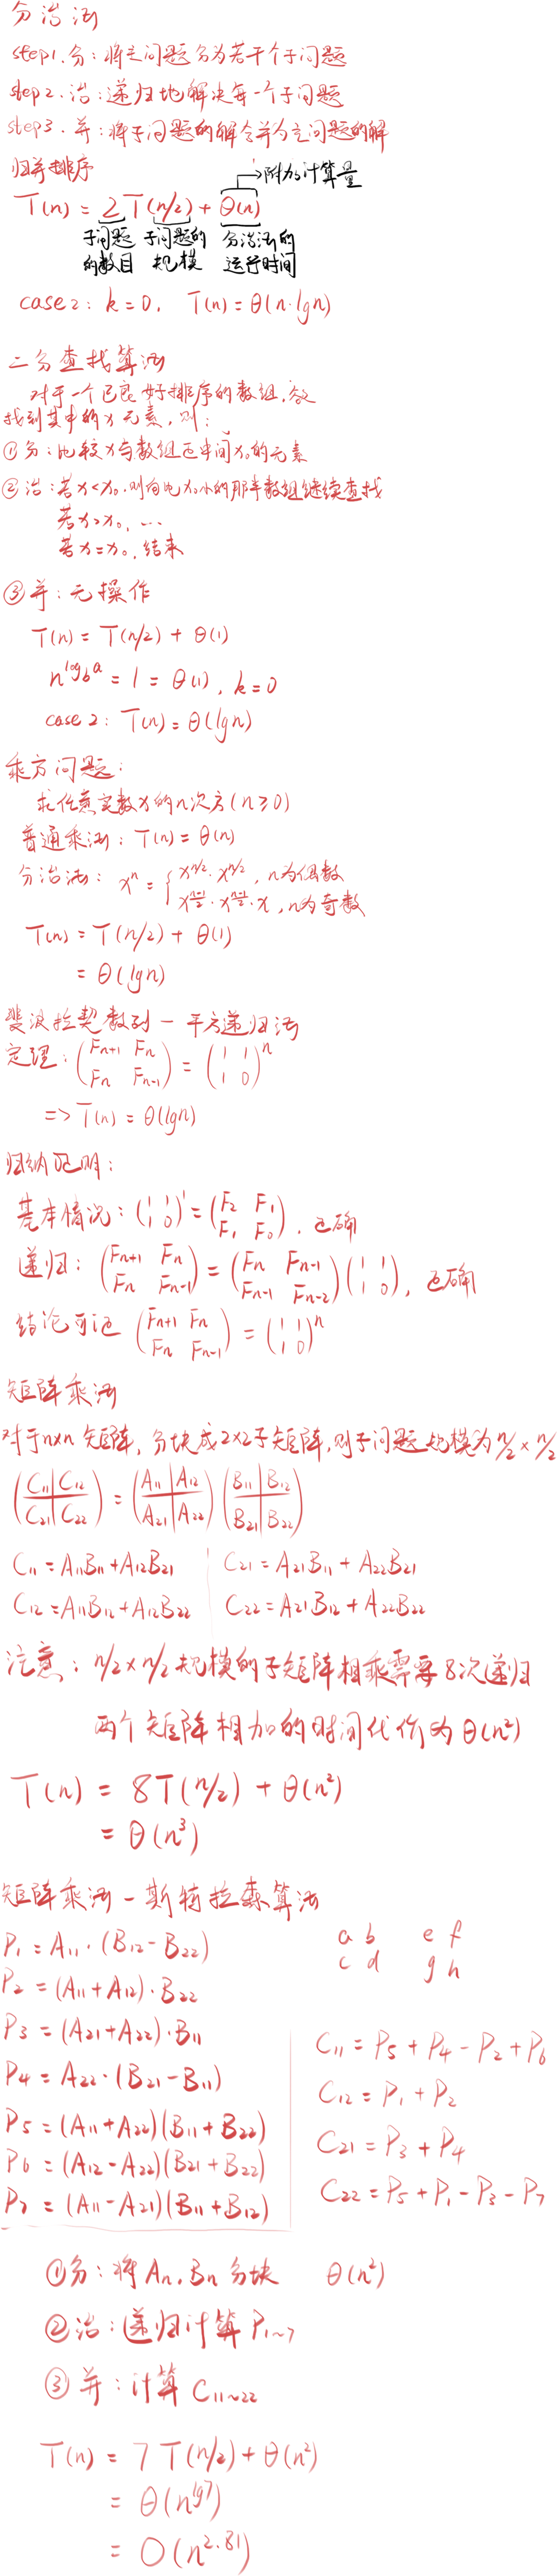 分治法
step1.分:将主问题分为若干个子问题
step2.治:递归地解决每一个子问题
step3.并:将子问题的解合并为主问题的解
归并排序
附加计算量
T(n) = 2T(n/2) + Θ(n)
子问题的数目 子问题的规模 分治法的运行时间
case2: k=0, T(n)=Θ(n·lgn)
二分查找算法
对于一个已良好排序的数组,欲
找到其中的x元素,则:
①分:比较x与数组正中间x₀的元素
②治:若x<x₀,则向比x₀小的那半数组继续查找
若x>x₀, …
若x=x₀, 结束
③并:无操作
T(n) = T(n/2) + Θ(1)
n^{log_b a} = 1 = Θ(1), k=0
case 2: T(n) = Θ(lgn)
乘方问题:
求任意实数x的n次方(n≥0)
普通乘法:T(n)=Θ(n)
分治法: xⁿ = { x^{n/2}·x^{n/2}, n为偶数
x^{(n-1)/2}·x^{(n-1)/2}·x, n为奇数
T(n) = T(n/2) + Θ(1)
= Θ(lgn)
斐波拉契数列-平方递归法
定理:(Fn+1 Fn / Fn Fn-1) = (1 1 / 1 0)ⁿ
=> T(n) = Θ(lgn)
归纳证明:
基本情况:(1 1 / 1 0)¹ = (F₂ F₁ / F₁ F₀). 正确
递归: (Fn+1 Fn / Fn Fn-1) = (Fn Fn-1 / Fn-1 Fn-2)(1 1 / 1 0), 正确
结论可证 (Fn+1 Fn / Fn Fn-1) = (1 1 / 1 0)ⁿ
矩阵乘法
对于n×n矩阵,分块成2×2子矩阵,则子问题规模为n/2×n/2
(C11 C12 / C21 C22) = (A11 A12 / A21 A22)(B11 B12 / B21 B22)
C11=A11B11+A12B21 C21=A21B11+A22B21
C12=A11B12+A12B22 C22=A21B12+A22B22
注意:n/2×n/2规模的子矩阵相乘需要8次递归
两个矩阵相加的时间代价为Θ(n²)
T(n) = 8T(n/2) + Θ(n²)
= Θ(n³)
矩阵乘法-斯特拉森算法
a b e f
c d g h
P1=A11·(B12-B22)
P2=(A11+A12)·B22
P3=(A21+A22)·B11
P4=A22·(B21-B11)
P5=(A11+A22)(B11+B22)
P6=(A12-A22)(B21+B22)
P7=(A11-A21)(B11+B12)
C11=P5+P4-P2+P6
C12=P1+P2
C21=P3+P4
C22=P5+P1-P3-P7
①分:将An,Bn分块 Θ(n²)
②治:递归计算P1~7
③并:计算C11~22
T(n) = 7T(n/2)+Θ(n²)
= Θ(n^{lg7})
= O(n^{2.81})